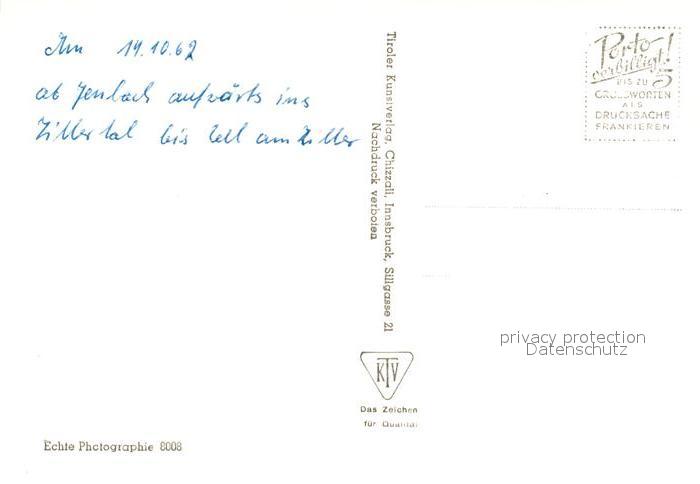 Am 14.10.62
ab Jenbach aufwärts ins
Zillertal bis Zell am Ziller
Tiroler Kunstverlag, Chizzali, Innsbruck, Sillgasse 21
Nachdruck verboten
Porto
verbilligt!
BIS ZU 5
GRUSSWORTEN
ALS
DRUCKSACHE
FRANKIEREN
privacy protection
Datenschutz
KTV
Das Zeichen
für Qualität
Echte Photographie 8008